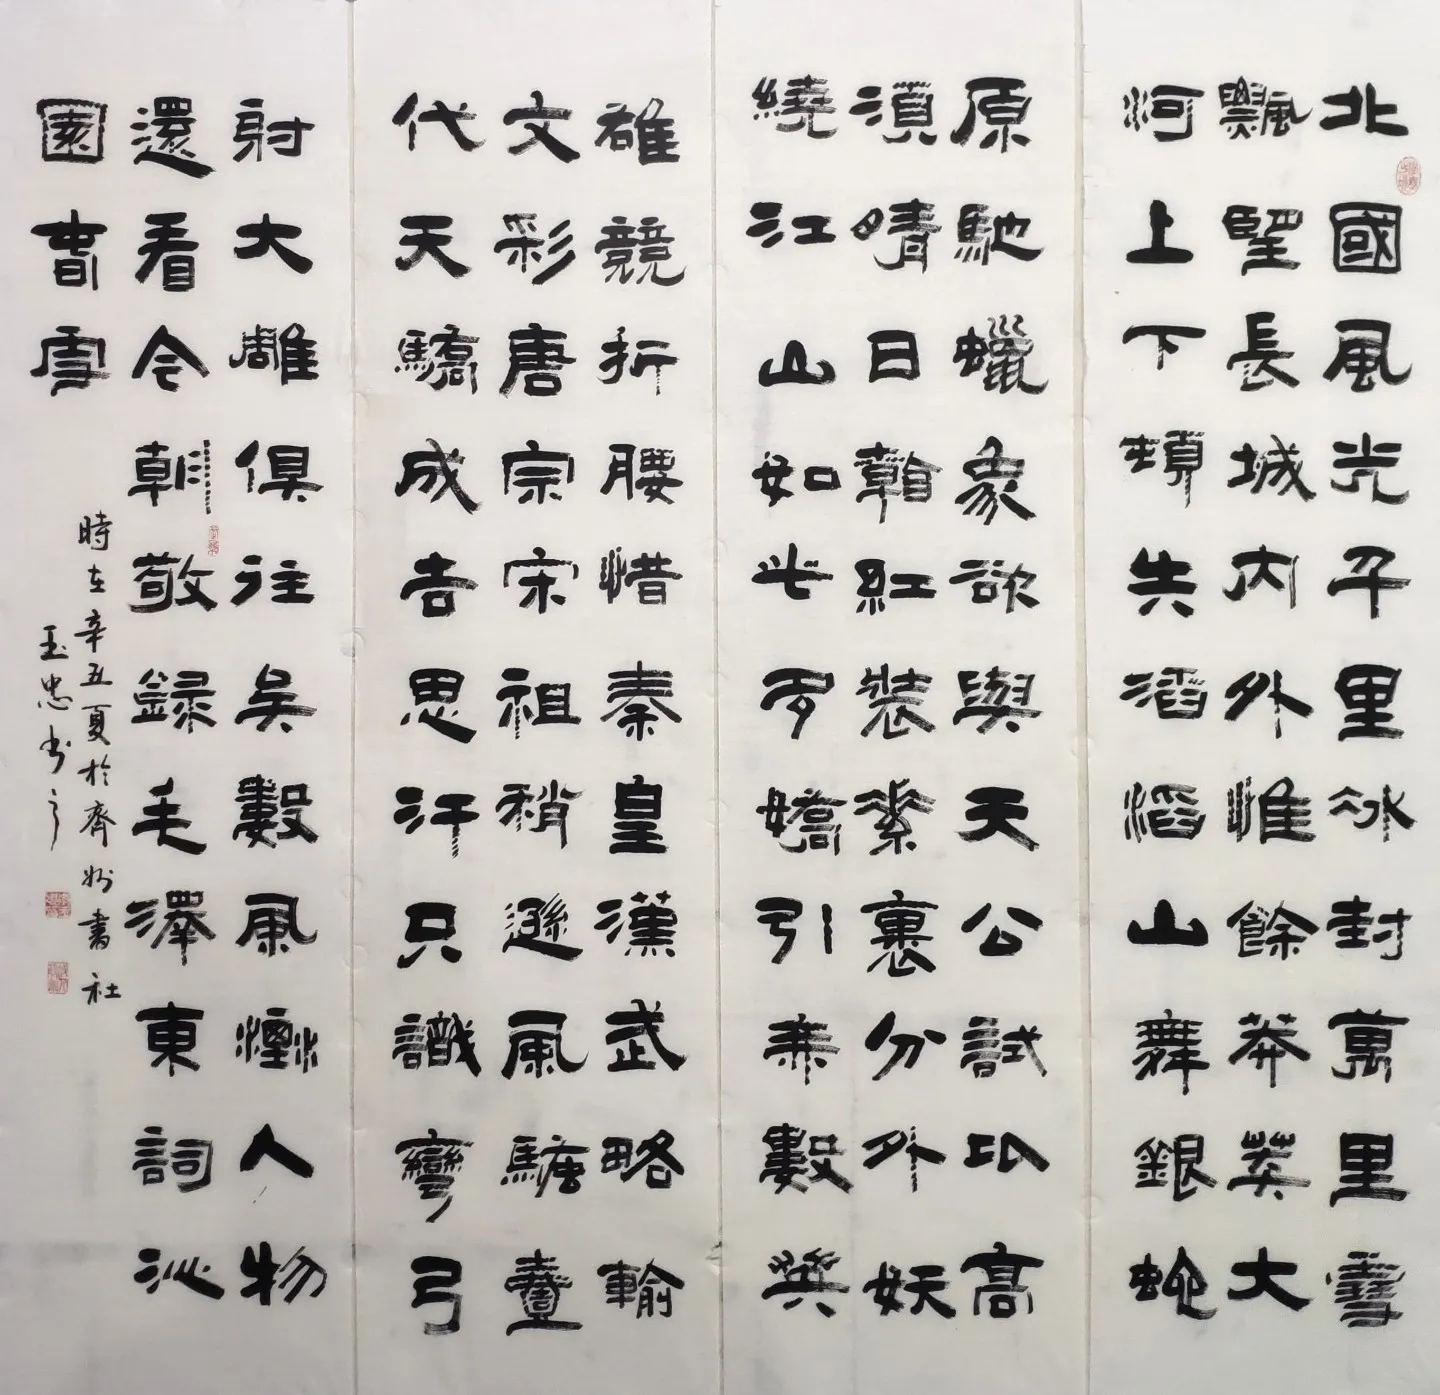 北國風光千里冰封萬里雪
飄望長城内外惟餘莽莽大
河上下頓失滔滔山舞銀蛇
原馳蠟象欲與天公試比高
須晴日看紅裝素裹分外妖
繞江山如此多嬌引無數英
雄競折腰惜秦皇漢武略輸
文彩唐宗宋祖稍遜風騷壹
代天驕成吉思汗只識彎弓
射大雕俱往矣數風流人物
還看今朝敬錄毛澤東詞沁
園春雪
時在辛丑夏於齊州書社
玉忠书之